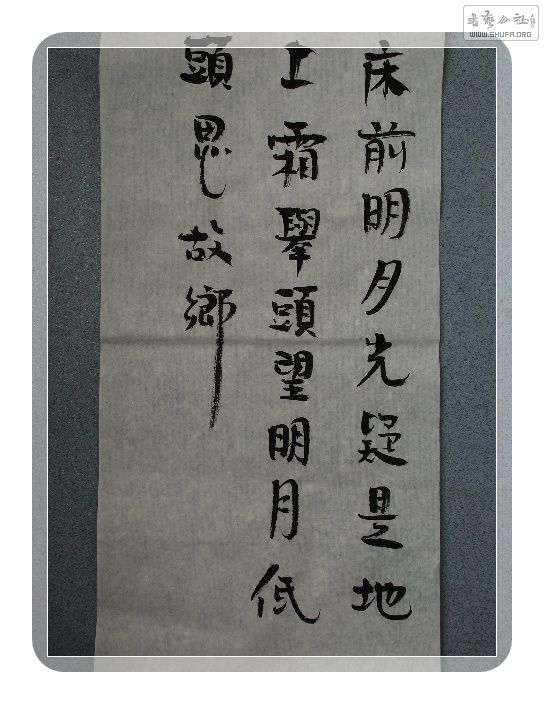 床前明月光疑是地
上霜舉頭望明月低
頭思故鄉
書藝公社
WWW.SHUFA.ORG